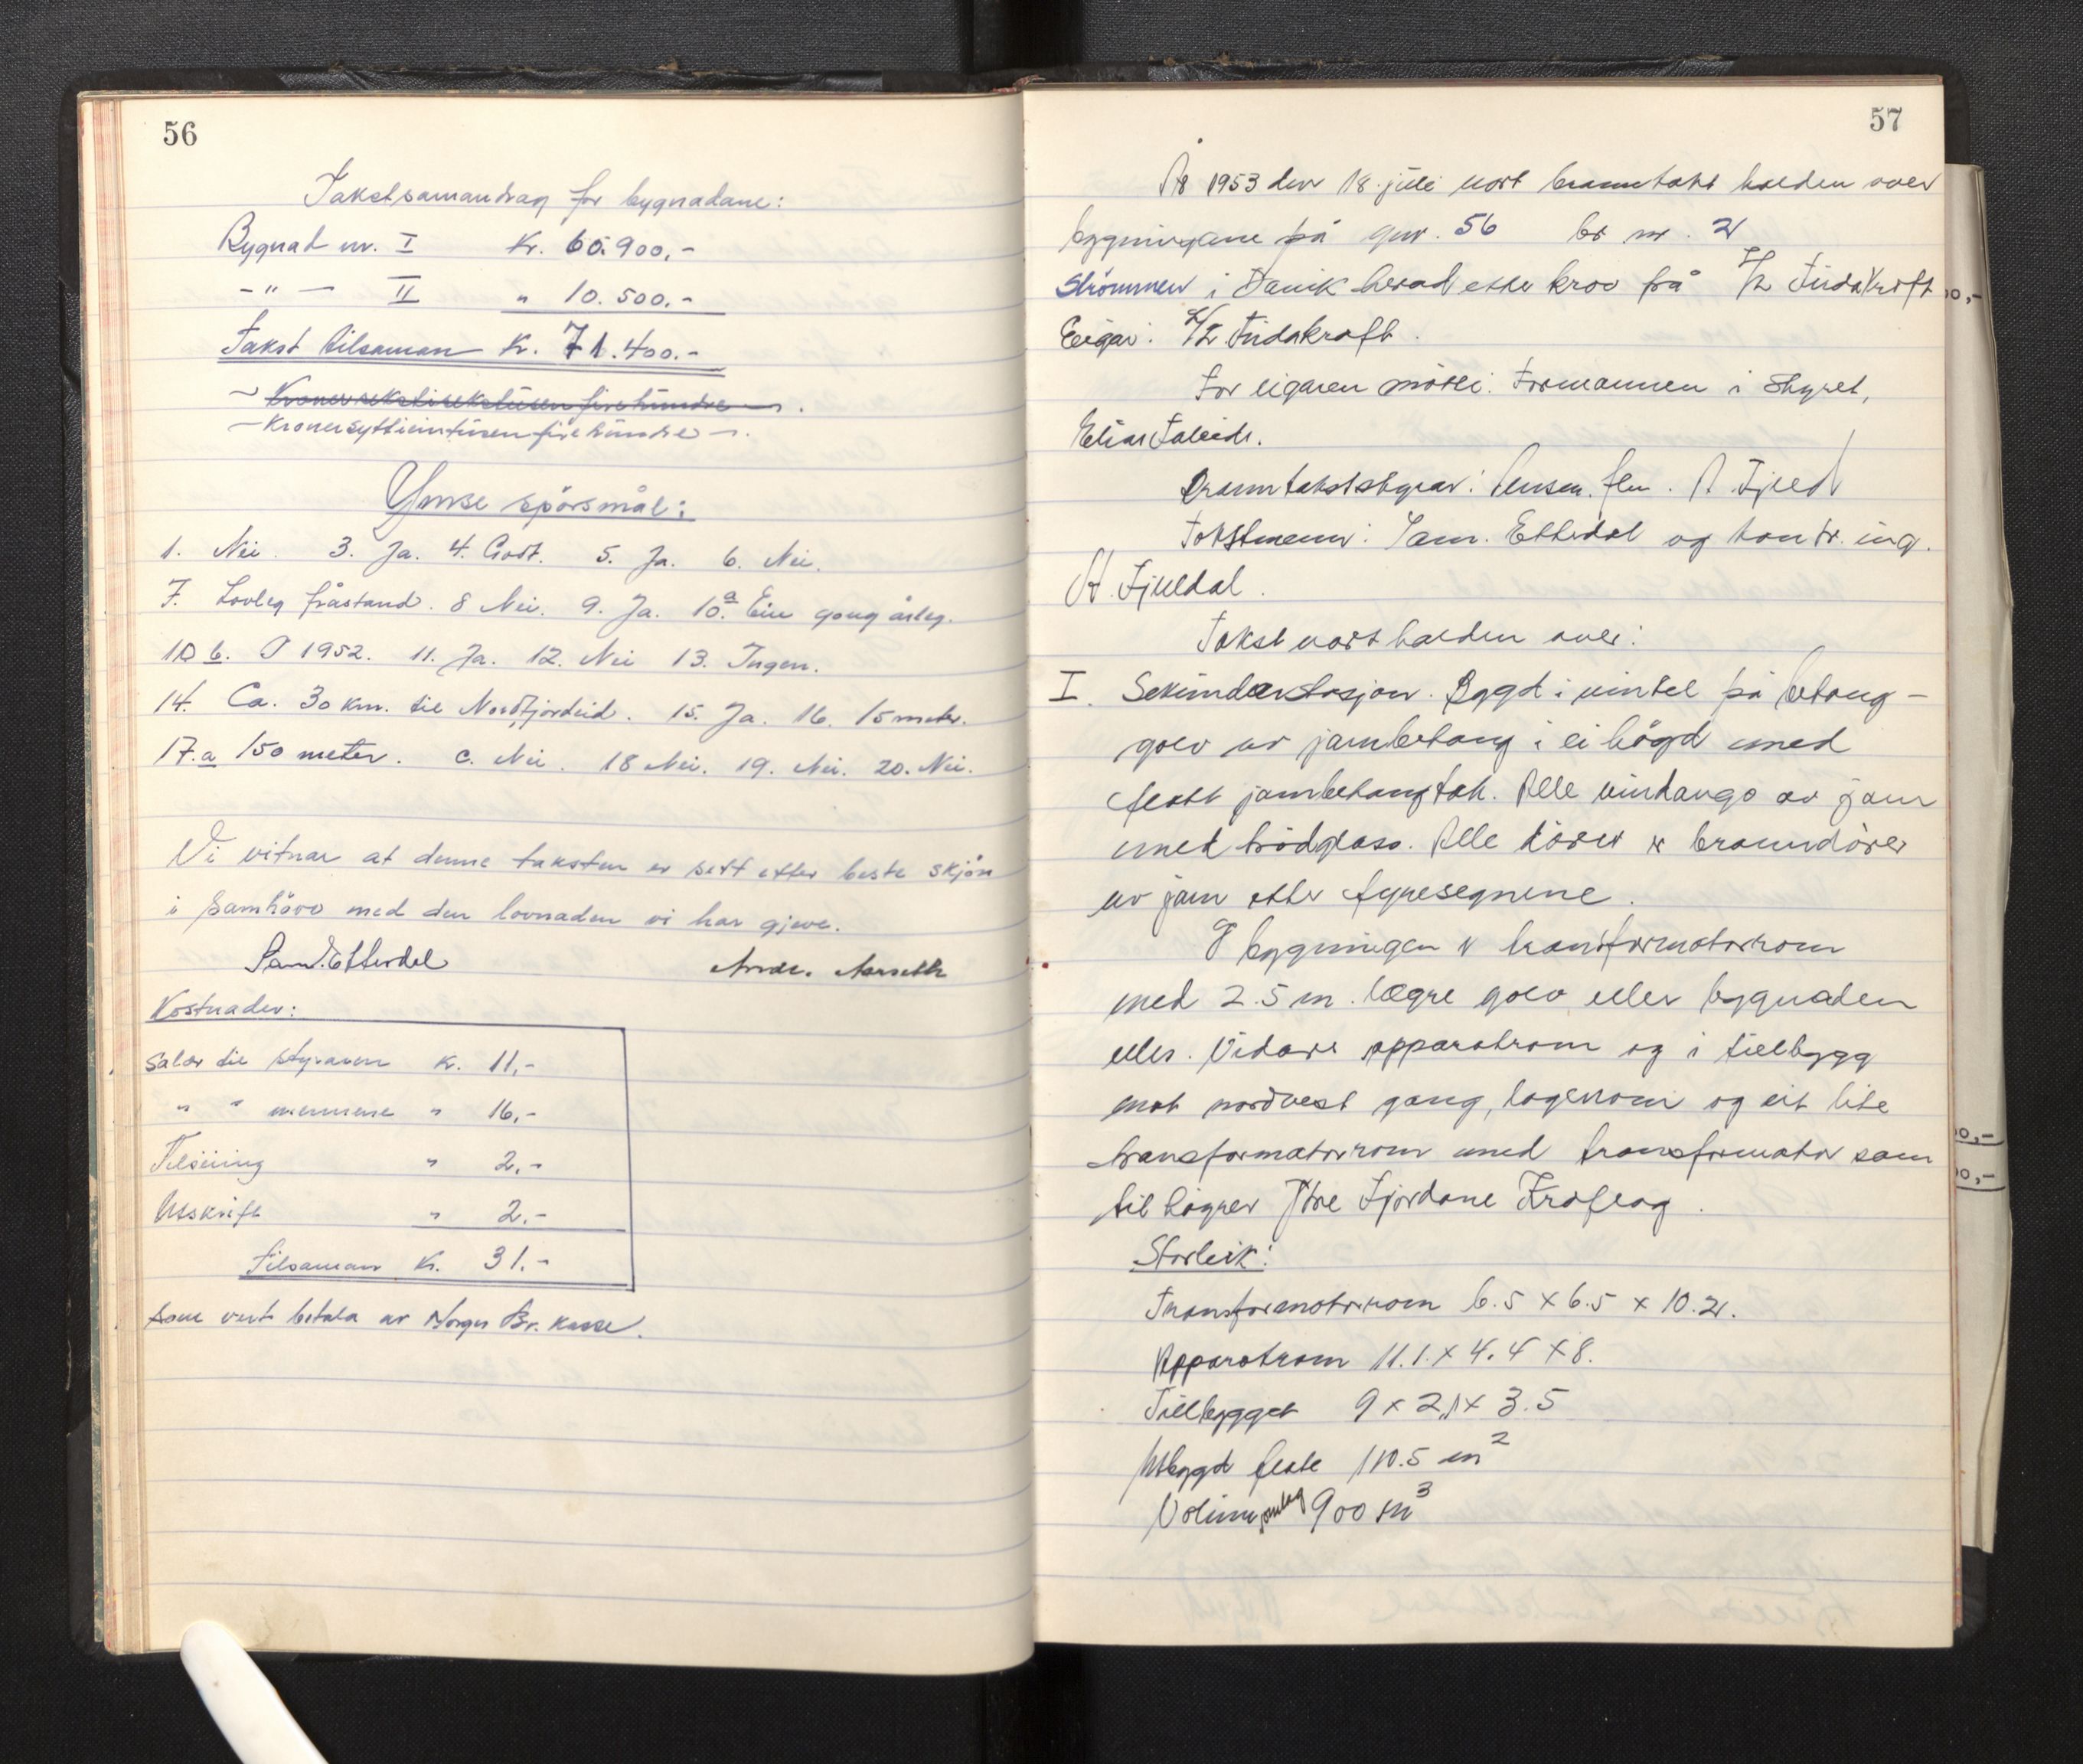 56
Takstsamandrag for bygnadane:
Bygnad nr. I Kr. 60.900,-
-"- II " 10.500.-
Takst tilsaman Kr. 71.400.-
- Kroner sekstisekstusen firehundre -.
- Kroner syttieintusen firehundre -.
Ymse spörsmål:
1. Nei. 3. Ja. 4. Godt. 5. Ja. 6. Nei.
7. Lovleg fråstand. 8 Nei. 9. Ja. 10.a Ein gong årleg.
10 b. I 1952. 11. Ja. 12. Nei 13. Ingen.
14. Ca. 30 km. til Nordfjordeid. 15. Ja. 16. 15 meter.
17.a 150 meter. c. Nei. 18 Nei. 19. Nei. 20. Nei.
Vi vitnar at denne taksten er sett etter beste skjön
i samhöve med den lovnaden vi har gjeve.
Sam. Etterdal
Kostnader:
Salær til styraren Kr. 11,-
" " mennene " 16,-
Tilsüing " 2.-
Utskrift " 2.-
Tilsaman Kr. 31.-
som vert betala av Norges Br. kasse.
57
År 1953 den 18. juli vart branntakst halden over
bygningane på gnr. 56 br nr. 2
Strömmen i Davik herad etter krav på Firdakraft
Eigar: Firdakraft.
For eigaren mötte: Formannen i Styret,
Elias Taleide.
Branntakststyrar: lensm. flm. A. Fjeld
Takstmenn: Sam. Etterdal og kontr. ing.
A. Fjelldal.
Takst vart halden over:
I. Sekundærstasjon. Bygd i vinkel på betong-
golv av jarnbetong i ei högd med
flatt jarnbetongtak. Alle vindaugo av jarn
med trådglass. Alle dörer er branndörer
av jarn etter fyresegnene.
I bygningen er transformatorrom
med 2.5 m. lægre golv eller bygnaden
elles. Vidare apparatrom og i tilbygg
mot nordvest gang, lagerrom og eit lite
transformatorrom med transformator som
til höyrer Ytre Fjordane Kraftlag.
Storleik:
Transformatorrom 6.5 x 6.5 x 10.2.
Apparatrom 11.1. x 4.4 x 8.
Tilbygget 9 x 2,1 x 3.5
Utbygd flate 110.5 m2
Volum omleg 900 m3